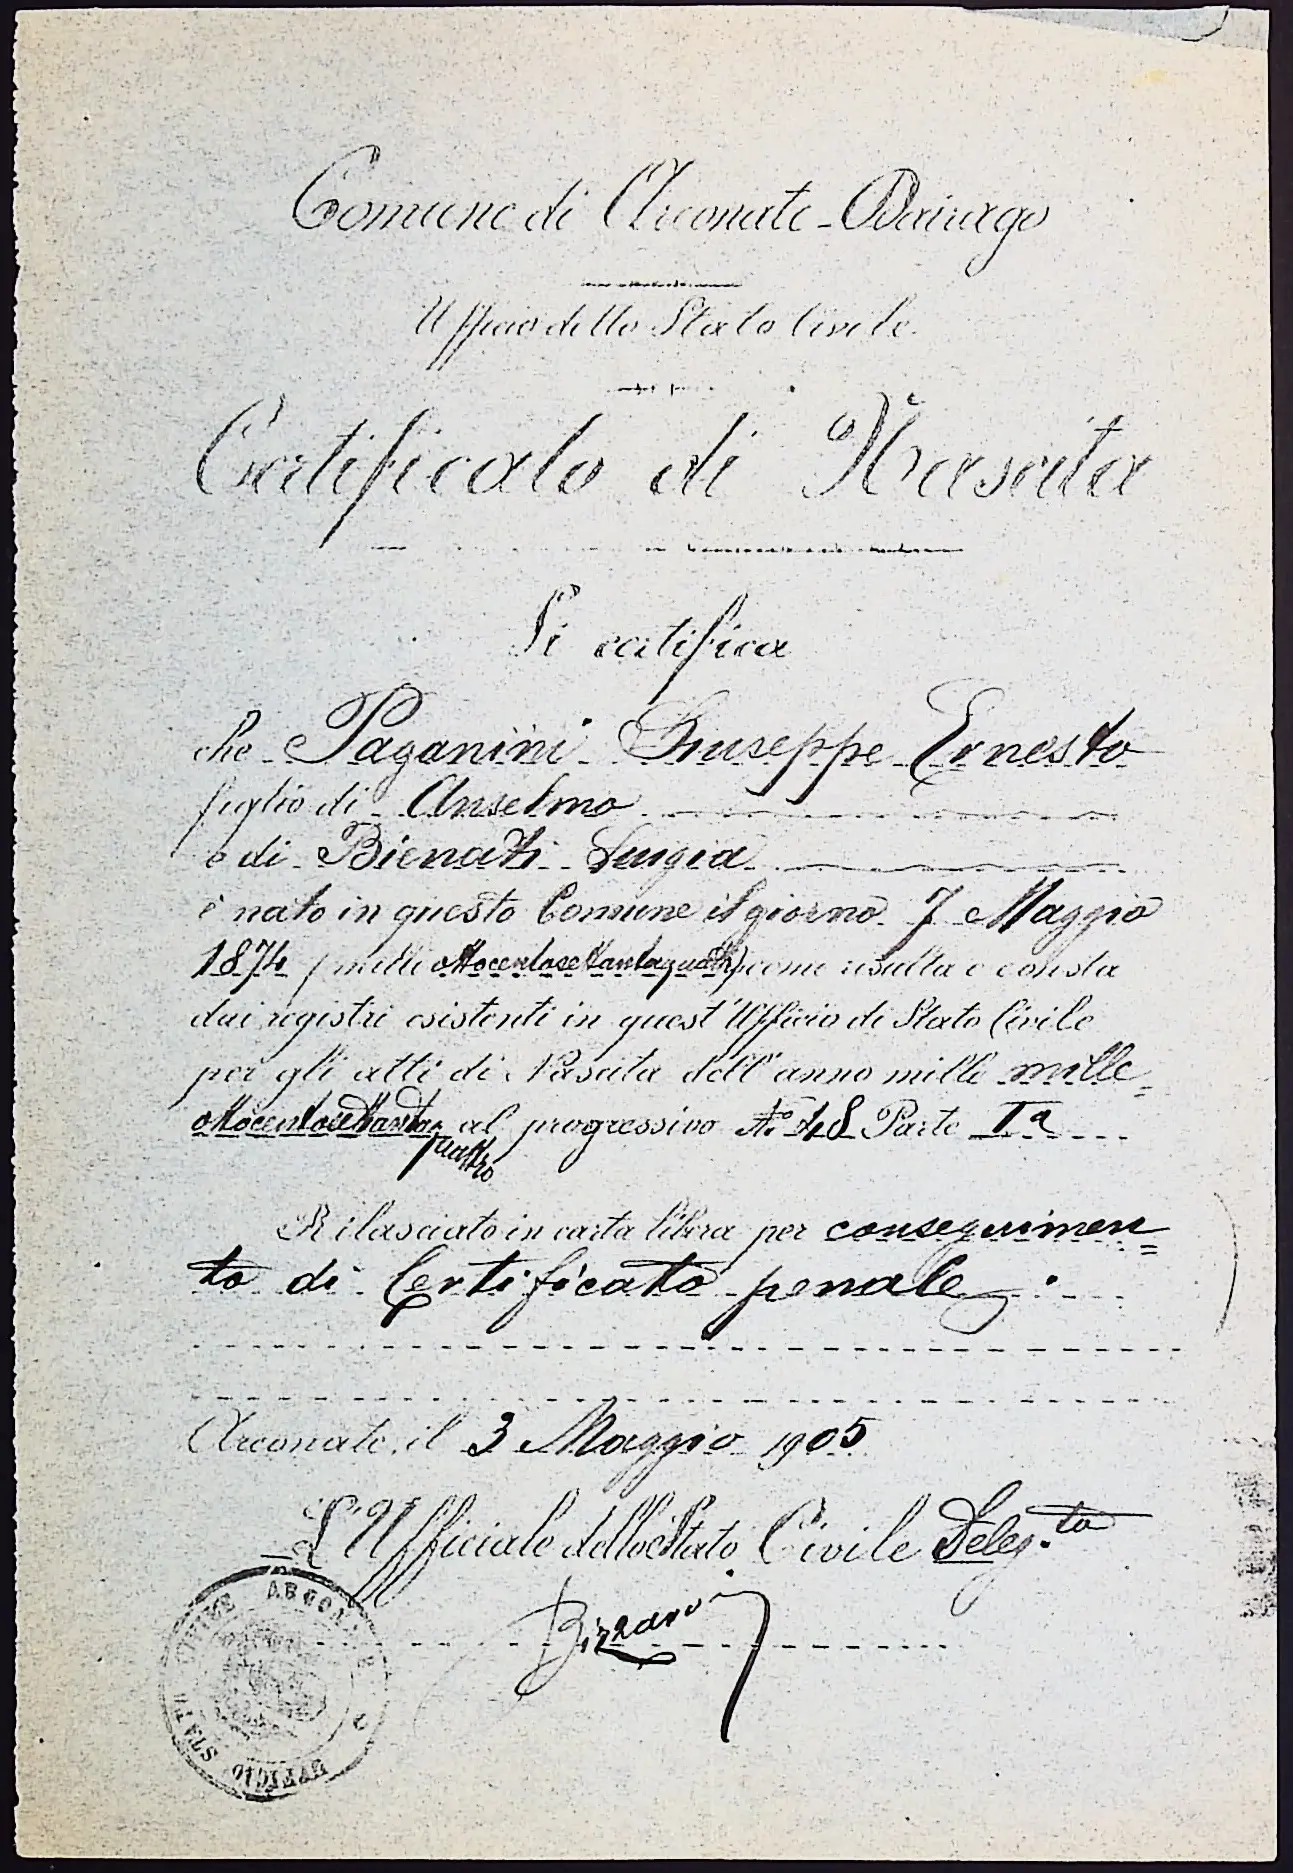 Comune di Arconate-Dairago
Ufficio dello Stato Civile.
Certificato di Nascita
Si certifica
che Paganini Giuseppe Ernesto
figlio di Anselmo
e di Bienati Luigia
è nato in questo Comune il giorno 7 Maggio
1874 (mille ottocentosettantaquattro) come risulta e consta
dai registri esistenti in quest'Ufficio di Stato Civile
per gli atti di Nascita dell'anno mille mille
ottocentosettanta= al progressivo N.° 48 Parte Ia
quattro
Rilasciato in carta libera per conseguimen=
to di Certificato penale.
Arconate, il 3 Maggio 1905
L'Ufficiale dello Stato Civile Deleg.to
Bizzarri
UFFICIO STATO CIVILE ARCONATE D